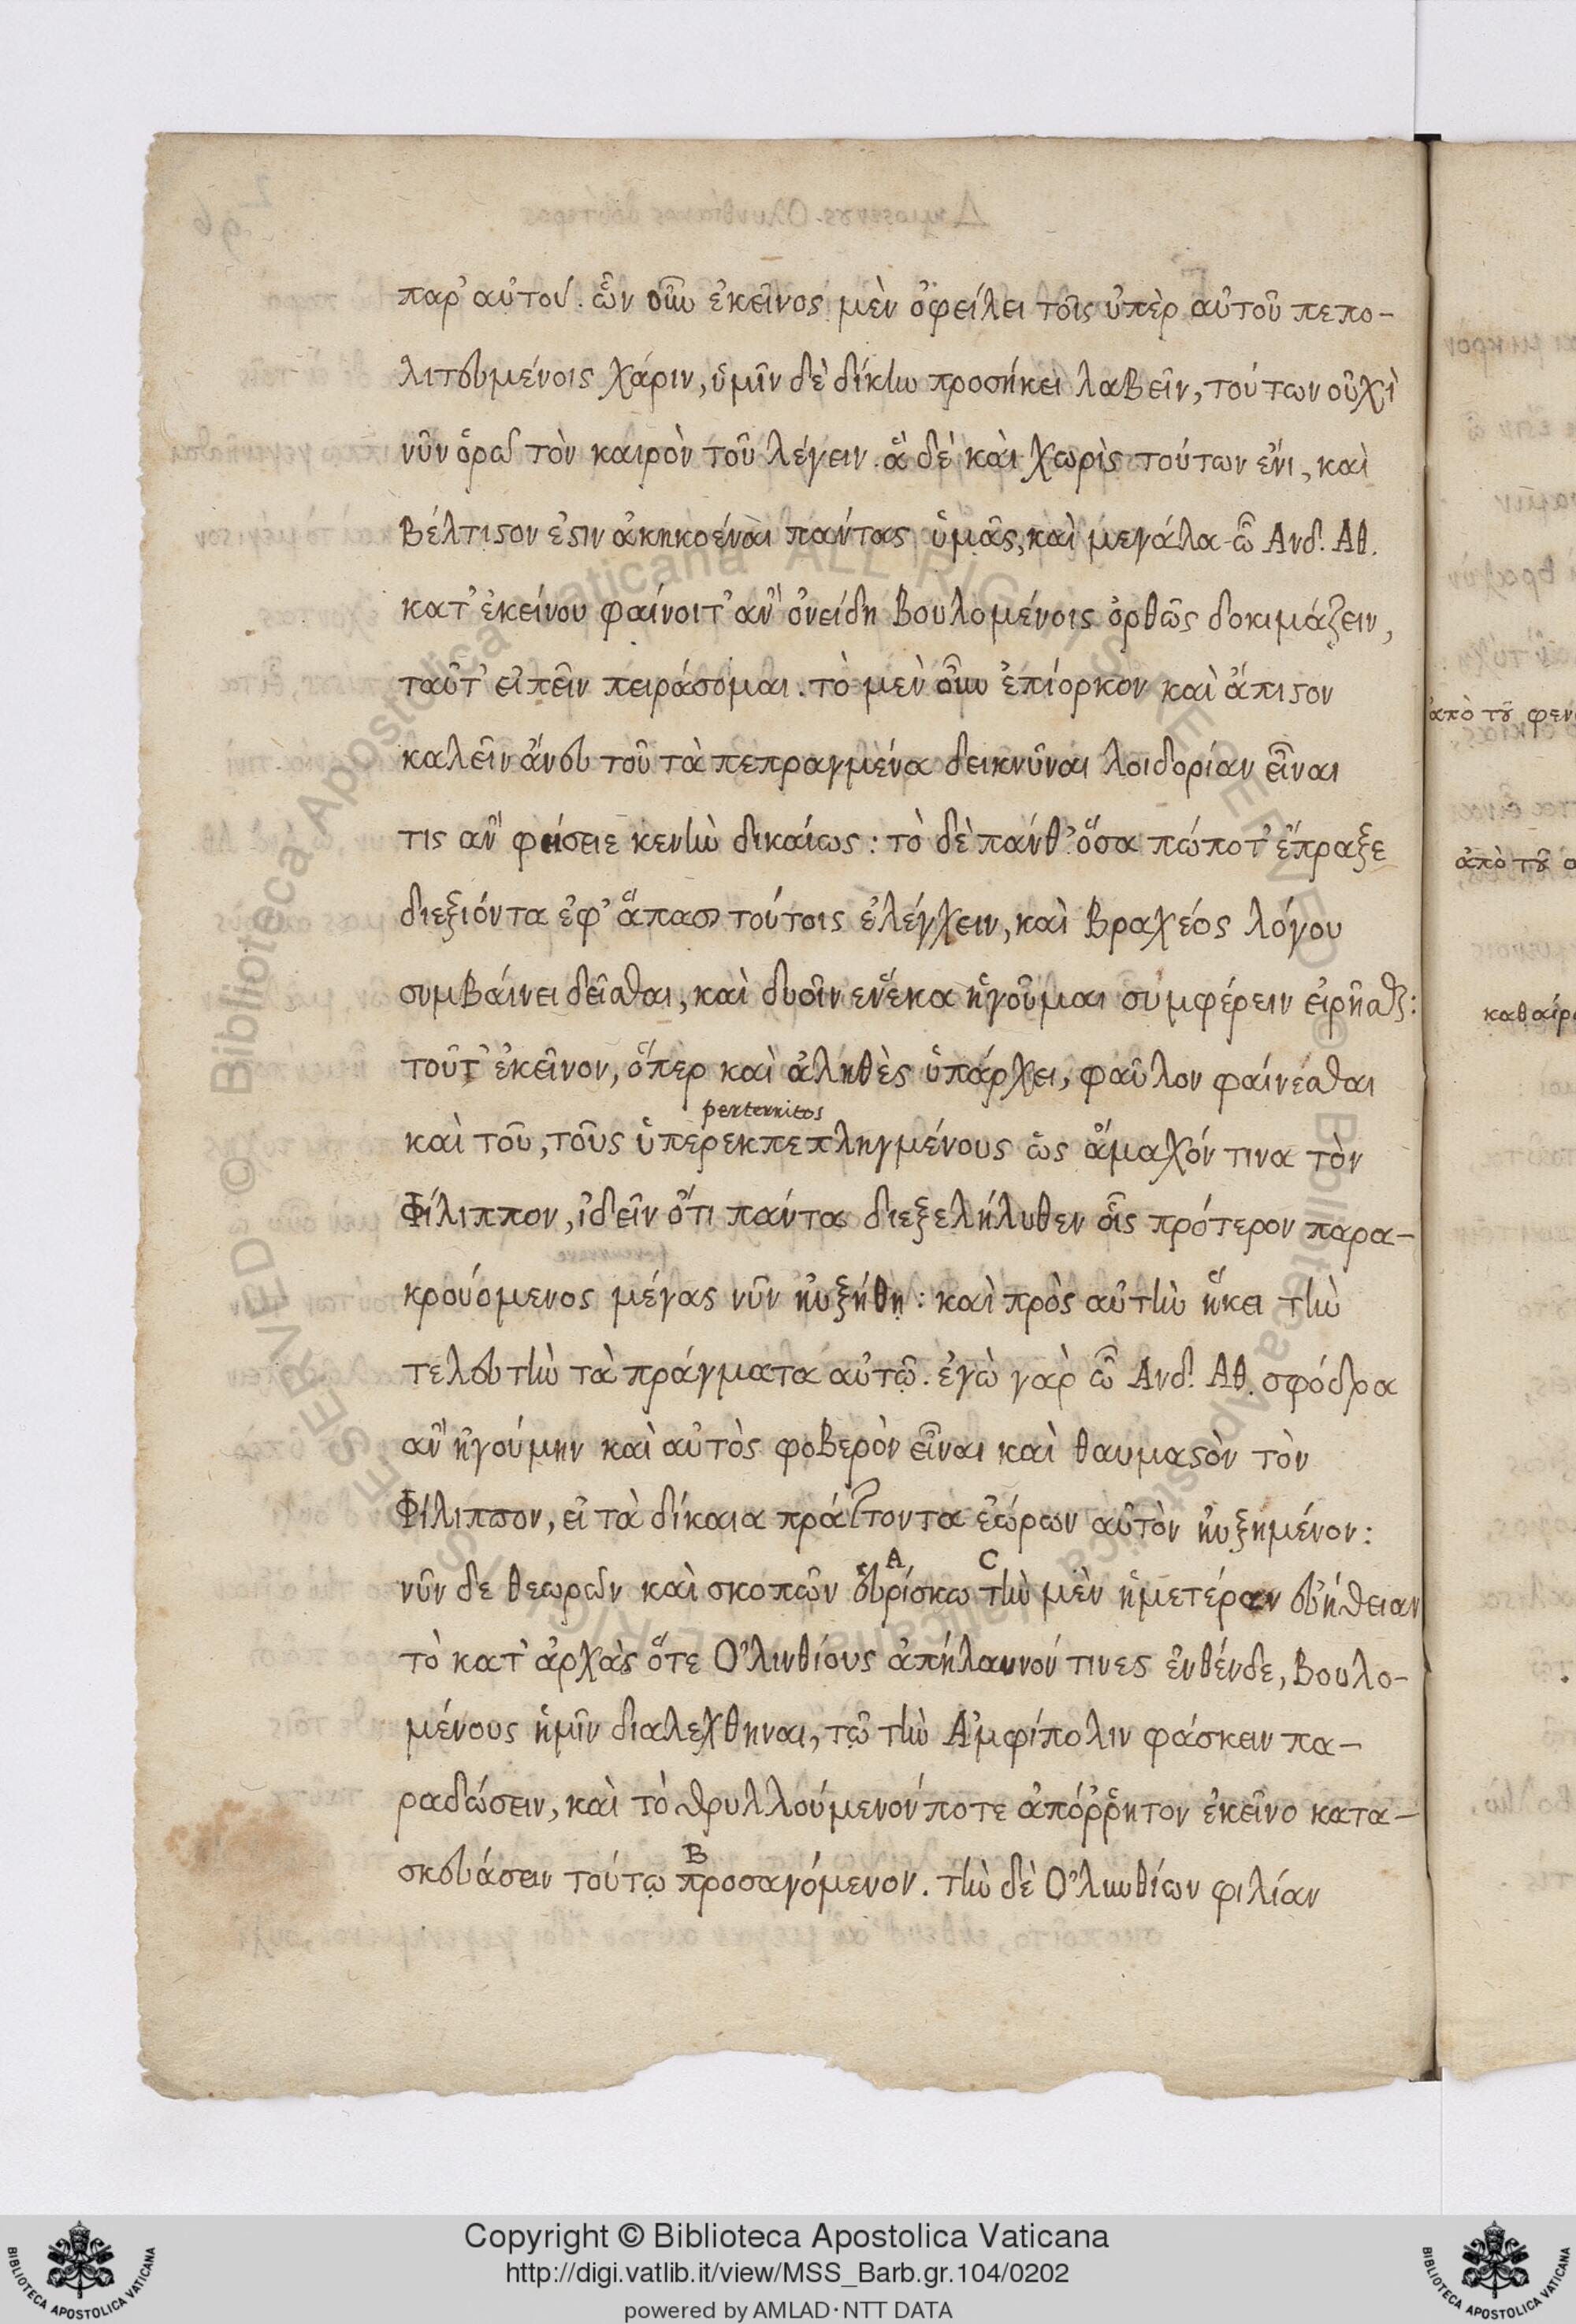 παρ' αὐτοῦ. ὧν οὖν ἐκεῖνος μὲν ὀφείλει τοῖς ὑπὲρ αὐτοῦ πεπο-
λιτευμένοις χάριν, ὑμῖν δὲ δίκην προσήκει λαβεῖν, τούτων οὐχὶ
νῦν ὁρῶ τὸν καιρὸν τοῦ λέγειν. ἃ δὲ καὶ χωρὶς τούτων ἔνι, καὶ
βέλτιστον ἐστιν ἀκηκοέναι πάντας ὑμᾶς, καὶ μεγάλα ὦ Ανδ. Αθ.
κατ' ἐκείνου φαίνοιτ' ἂν ὀνείδη βουλομένοις ὀρθῶς δοκιμάζειν,
ταῦτ' εἰπεῖν πειράσομαι. τὸ μὲν οὖν ἐπίορκον καὶ ἄπιστον
καλεῖν ἄνευ τοῦ τὰ πεπραγμένα δεικνῦναι λοιδορίαν εἶναι
τις ἂν φήσειε κενὴν δικαίως: τὸ δὲ πάνθ' ὅσα πώποτ' ἔπραξε
διεξιόντα ἐφ' ἅπασι τούτοις ἐλέγχειν, καὶ βραχέος λόγου
συμβαίνει δεῖσθαι, καὶ δυοῖν ἕνεκα ἡγοῦμαι συμφέρειν εἰρῆσθαι:
τοῦτ' ἐκεῖνον, ὅπερ καὶ ἀληθὲς ὑπάρχει, φαῦλον φαίνεσθαι
perterritos
καὶ τοῦ, τοῦς ὑπερεκπεπληγμένους ὡς ἄμαχόν τινα τὸν
Φίλιππον, ἰδεῖν ὅτι πάντα διεξελήλυθεν οἷς πρότερον παρα-
κρουόμενος μέγας νῦν ηὐξήθη: καὶ πρὸς αὐτὴν ἥκει τὴν
τελευτὴν τὰ πράγματα αὐτῷ. ἐγὼ γὰρ ὦ Ανδ. Αθ. σφόδρα
ἂν ἡγούμην καὶ αὐτὸς φοβερὸν εἶναι καὶ θαυμαστὸν τὸν
Φίλιππον, εἰ τὰ δίκαια πράττοντα ἑώρων αὐτὸν ηὐξημένον:
A C
νῦν δε θεωρῶν καὶ σκοπῶν εὑρίσκω τὴν μὲν ἡμετέραν εὐήθειαν
τὸ κατ' ἀρχὰς ὅτε Ὀλινθίους ἀπήλαυνόν τινες ἐνθένδε, βουλο-
μένους ἡμῖν διαλεχθηναι, τῷ τὴν Ἀμφίπολιν φάσκειν πα-
ραδώσειν, καὶ τὸ θρυλλούμενόν ποτε ἀπόῤῥητον ἐκεῖνο κατα-
B
σκευάσειν τούτῳ προσαγόμενον. τὴν δὲ Ὀλυνθίων φιλίαν
ἀπὸ τοῦ
ἀπὸ τοῦ
Copyright © Biblioteca Apostolica Vaticana
http://digi.vatlib.it/view/MSS_Barb.gr.104/0202
powered by AMLAD·NTT DATA
BIBLIOTECA APOSTOLICA VATICANA
BIBLIOTECA APOSTOLICA VATICANA